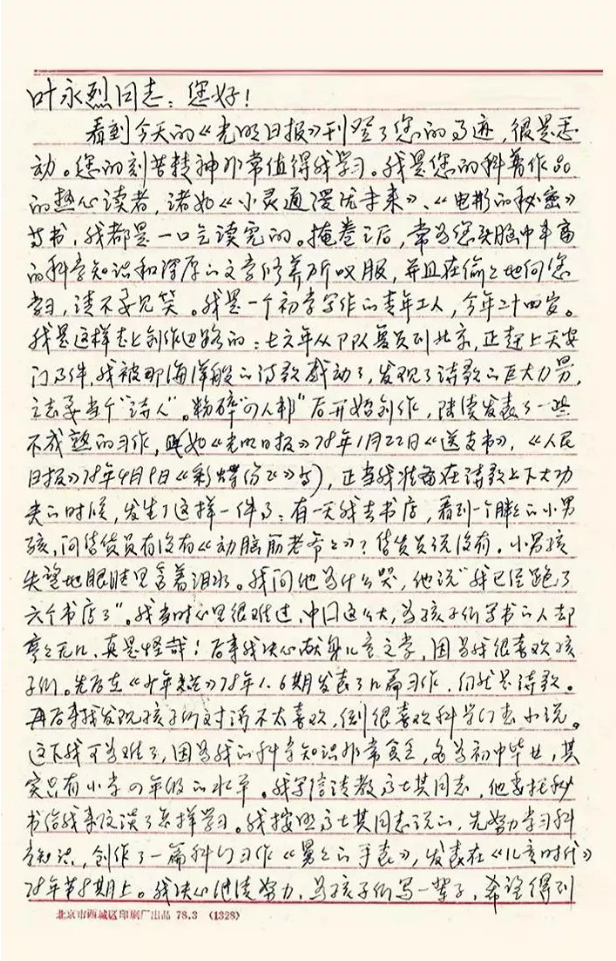 叶永烈同志：您好！
看到今天的《光明日报》刊登了您的事迹，很是感
动。您的刻苦精神非常值得我学习。我是您的科普作品
的热心读者，诸如《小灵通漫游未来》、《电影的秘密》
等书，我都是一口气读完的。掩卷之后，常为您头脑中丰富
的科学知识和深厚的文学修养所叹服，并且在偷偷地向您
学习，请不要见笑。我是一个初学写作的青年工人，今年二十四岁。
我是这样走上创作道路的：七六年从部队复员到北京，正赶上天安
门事件，我被那海洋般的诗歌感动了，发现了诗歌的巨大力量，
立志要当个“诗人”。粉碎“四人帮”后开始创作，陆续发表了一些
不成熟的习作，（如《光明日报》78年1月22日《送支书》，《人民
日报》78年4月9日《彩蝶纷飞》等），正当我准备在诗歌上下大功
夫的时候，发生了这样一件事：有一天我去书店，看到一个胖胖的小男
孩，问售货员有没有《动脑筋老爷爷》？售货员说没有。小男孩
失望地眼睛里含着泪水。我问他为什么哭，他说“我已经跑了
六个书店了”。我当时心里很难过，中国这么大，为孩子们写书的人却
寥寥无几，真是怪哉！后来我决心献身儿童文学，因为我很喜欢孩
子们。先后在《少年文艺》78年1.6期发表了几篇习作，仍然是诗歌。
再后来我发现孩子们对诗不太喜欢，倒很喜欢科学幻想小说。
这下我可为难了，因为我的科学知识非常贫乏，名为初中毕业，其
实只有小学四年级的水平。我写信请教高士其同志，他委托秘
书给我来信谈了怎样学习。我按照高士其同志说的，先努力学习科
学知识，创作了一篇科幻习作《男男的手表》，发表在《儿童时代》
78年第8期上。我决心继续努力，为孩子们写一辈子，希望得到
北京市西城区印刷厂出品 78.3 (1328)